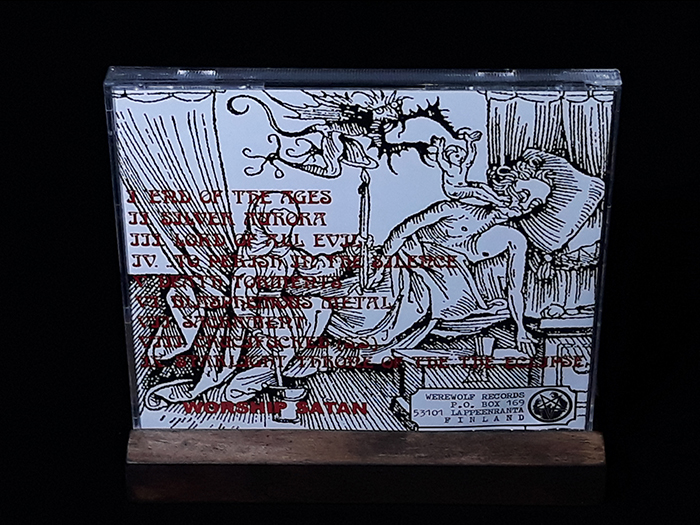 I END OF THE AGES
II SILVER AURORA
III LORD OF ALL EVIL
IV. TO PERISH IN THE SILENCE
V. DEATH TORMENTS
VI. BLASPHEMOUS METAL
VII.
VIII.
THRONE OF THE THE ECLIPSE
WORSHIP SATAN
WEREWOLF RECORDS
P.O. BOX 169
53101 LAPPEENRANTA
FINLAND